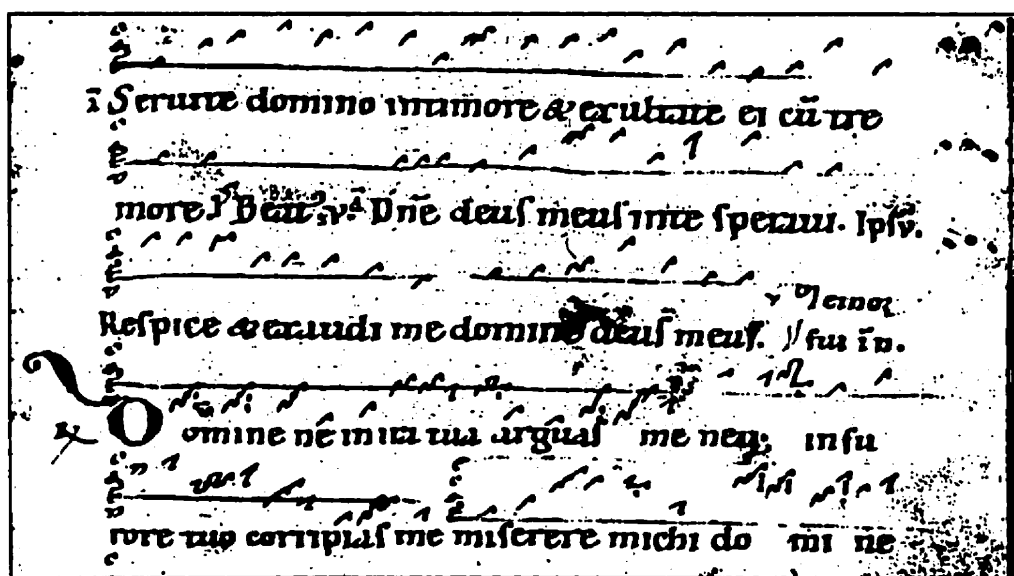 Seruite domino intimore & exultate ei cū tre
more. Beat dñe deus meus inte speraui. Ips̄
Respice & exaudi me domine deus meus. fui īn.
Domine nē in ira tua arguas me neq; infu
rore tuo corripias me miserere michi do mi ne